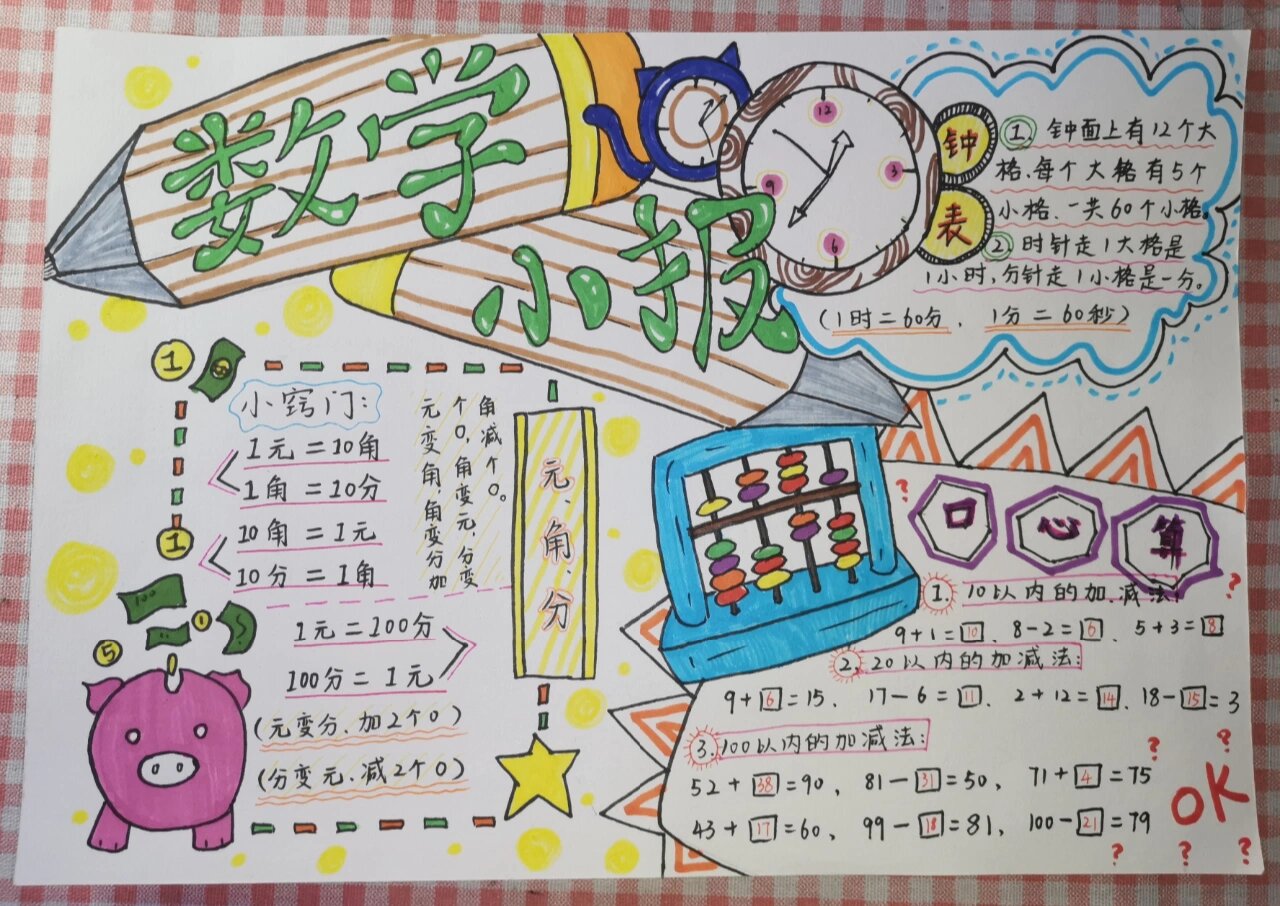 数学
小报
12
3
6
9
钟
表
① 钟面上有12个大
格、每个大格有5个
小格、一共60个小格。
② 时针走1大格是
1小时,分针走1小格是一分。
(1时=60分、1分=60秒)
1
小窍门:
1元=10角
1角=10分
10角=1元
10分=1角
1
1元=100分
100分=1元
(元变分、加2个0)
(分变元、减2个0)
元变角,角变分加
个0,角变元,分变
角减个0。
元、角、分
100
0
5
口心算
1. 10以内的加、减法:
9+1=10、8-2=6、5+3=8
2. 20以内的加减法:
9+6=15、17-6=11、2+12=14、18-15=3
3. 100以内的加减法:
52+38=90,81-31=50,71+4=75
43+17=60,99-18=81,100-21=79
OK
? ? ? ? ? ? ?